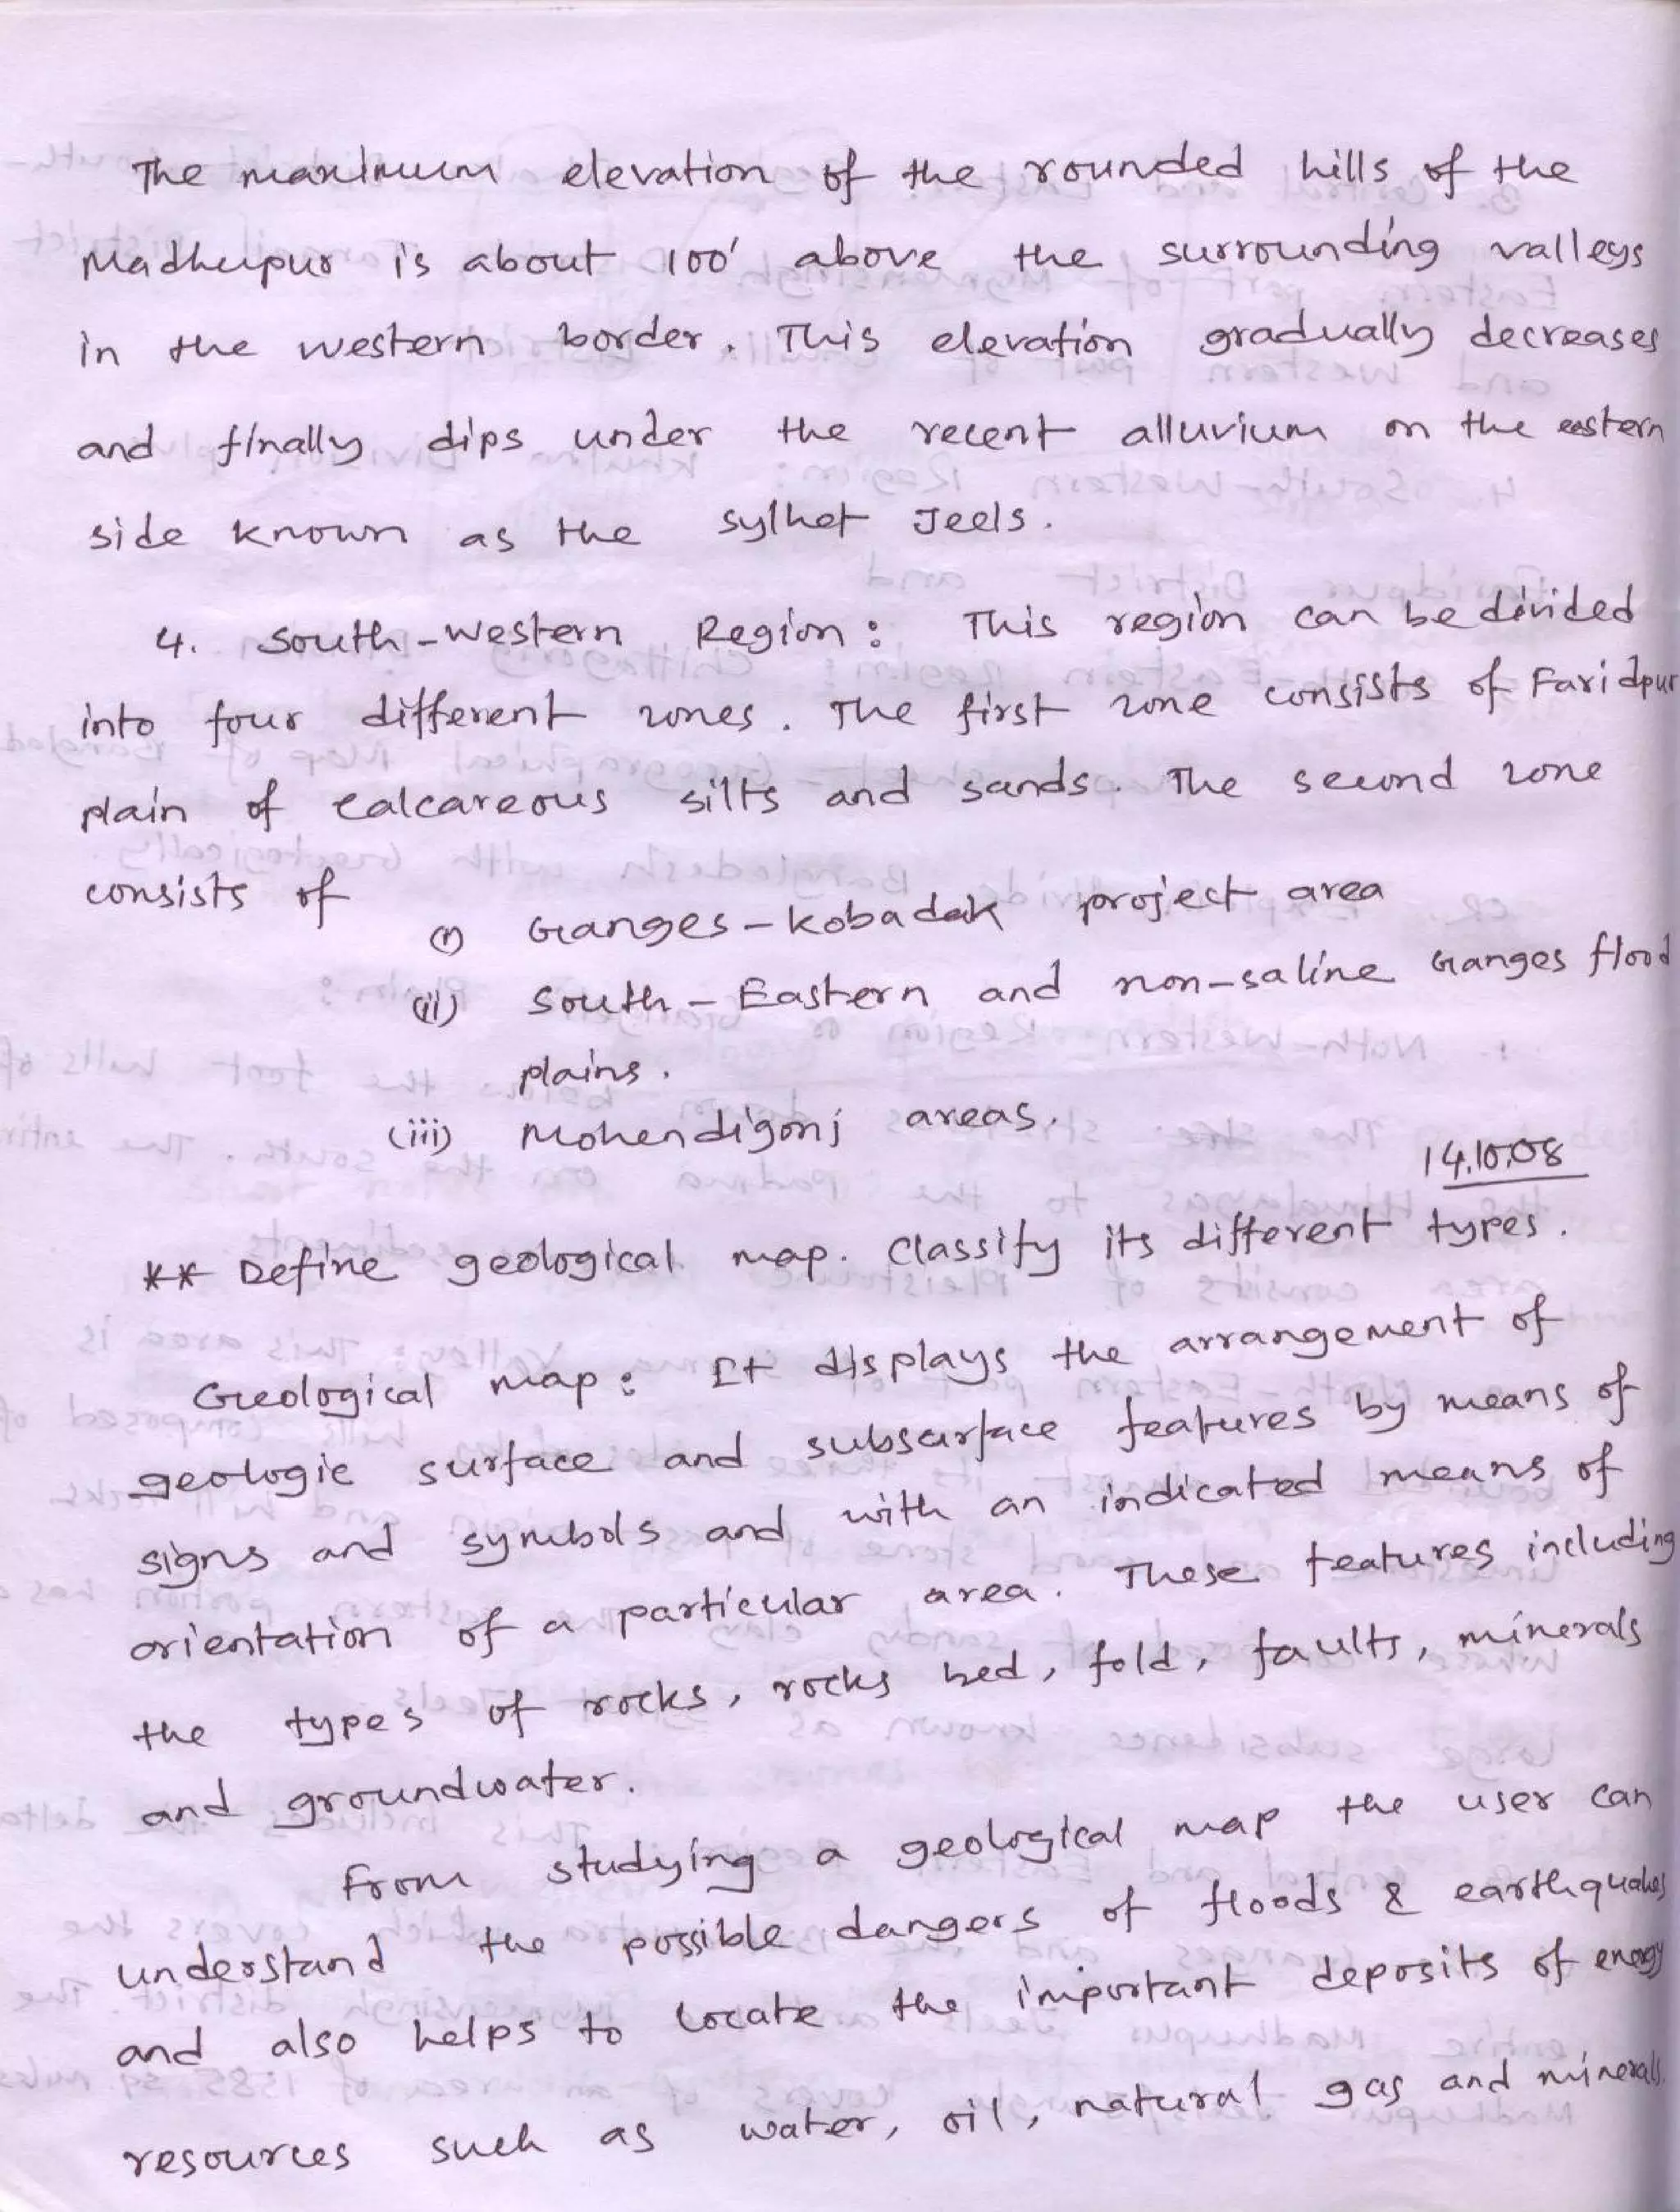 The maximum elevation of the rounded hills of the
Madhupur is about 100' above the surrounding valleys
in the western border. This elevation gradually decreases
and finally dips under the recent alluvium on the eastern
side known as the Sylhet Jeels.
4. South-Western Region: This region can be divided
into four different zones. The first zone consists of Faridpur
plain of calcareous silts and sands. The second zone
consists of
(i) Ganges-Kobadak project area
(ii) South-Eastern and non-saline Ganges flood
plains.
(iii) Mohendigonj areas.
14.10.08
** Define geological map. Classify its different types.
Geological map: It displays the arrangement of
geologic surface and subsurface features by means of
signs and symbols and with an indicated means of
orientation of a particular area. These features including
the types of rocks, rocks bed, fold, faults, minerals
and groundwater.
From studying a geological map the user can
understand the possible dangers of floods & earthquakes
and also helps to locate the important deposits of energy
resources such as water, oil, natural gas and minerals.